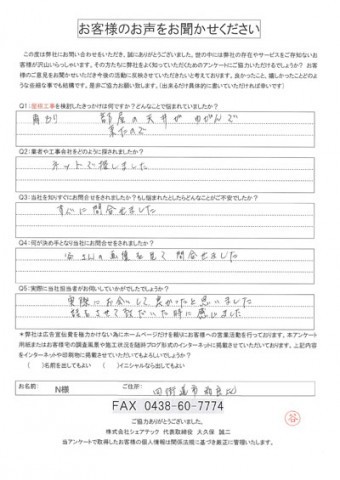 お客様のお声をお聞かせください
この度は弊社にお問い合わせをいただき、誠にありがとうございました。世の中には弊社の存在やサービスをご存知ないお
客様が沢山いらっしゃいます。その方たちに弊社をよく知っていただくためのアンケートにご協力いただけるでしょうか？ お客
様のご意見をお聞かせいただき今後の活動に反映させていただきたいと考えております。良かったこと、嬉しかったことどのよ
うな些細な事でも結構です。是非ご協力お願い致します。（出来るだけ具体的に書いていただければ幸いです）
Q1：屋根工事を検討したきっかけは何ですか？どんなことで悩まれていましたか？
雨もり 部屋の天井がゆがんで
来たので
Q2：業者や工事会社をどのように探されましたか？
ネットで探しました
Q3：当社を知りすぐにお問合せをされましたか？もし悩まれたとしたらどんなことがご不安でしたか？
すぐに問合せました
Q4：何が決め手となり当社にお問合せをされましたか？
の画像を見て問合せました
Q5：実際に当社担当者がお伺いしていかがでしたでしょうか？
実際にお会いして良かったと思いました
話をさせて頂だいた時に感じました
＊弊社は広告宣伝費を極力かけない為にホームページだけを頼りにお客様への営業活動を行っております。本アンケート
用紙またはお客様宅の調査風景や施工状況を随時ブログ形式のインターネットに掲載させていただいております。上記内容
をインターネットや印刷物に掲載させていただいてもよろしいでしょうか？
（ ）名前を出してもよい （ ）イニシャルなら出してもよい
お名前: N様 ご住所: 四街道市
FAX 0438-60-7774
ご協力ありがとうございました。
株式会社シェアテック 代表取締役 大久保 誠二
当アンケートで取得したお客様の個人情報は関係法規に基づき厳正に管理いたします。